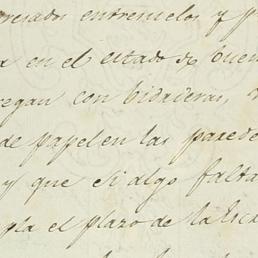 entresuelos y p
en el estado de buen
regan con bidrieras,
de papel en las parede
y que si algo falta
pla el plazo de la Esc